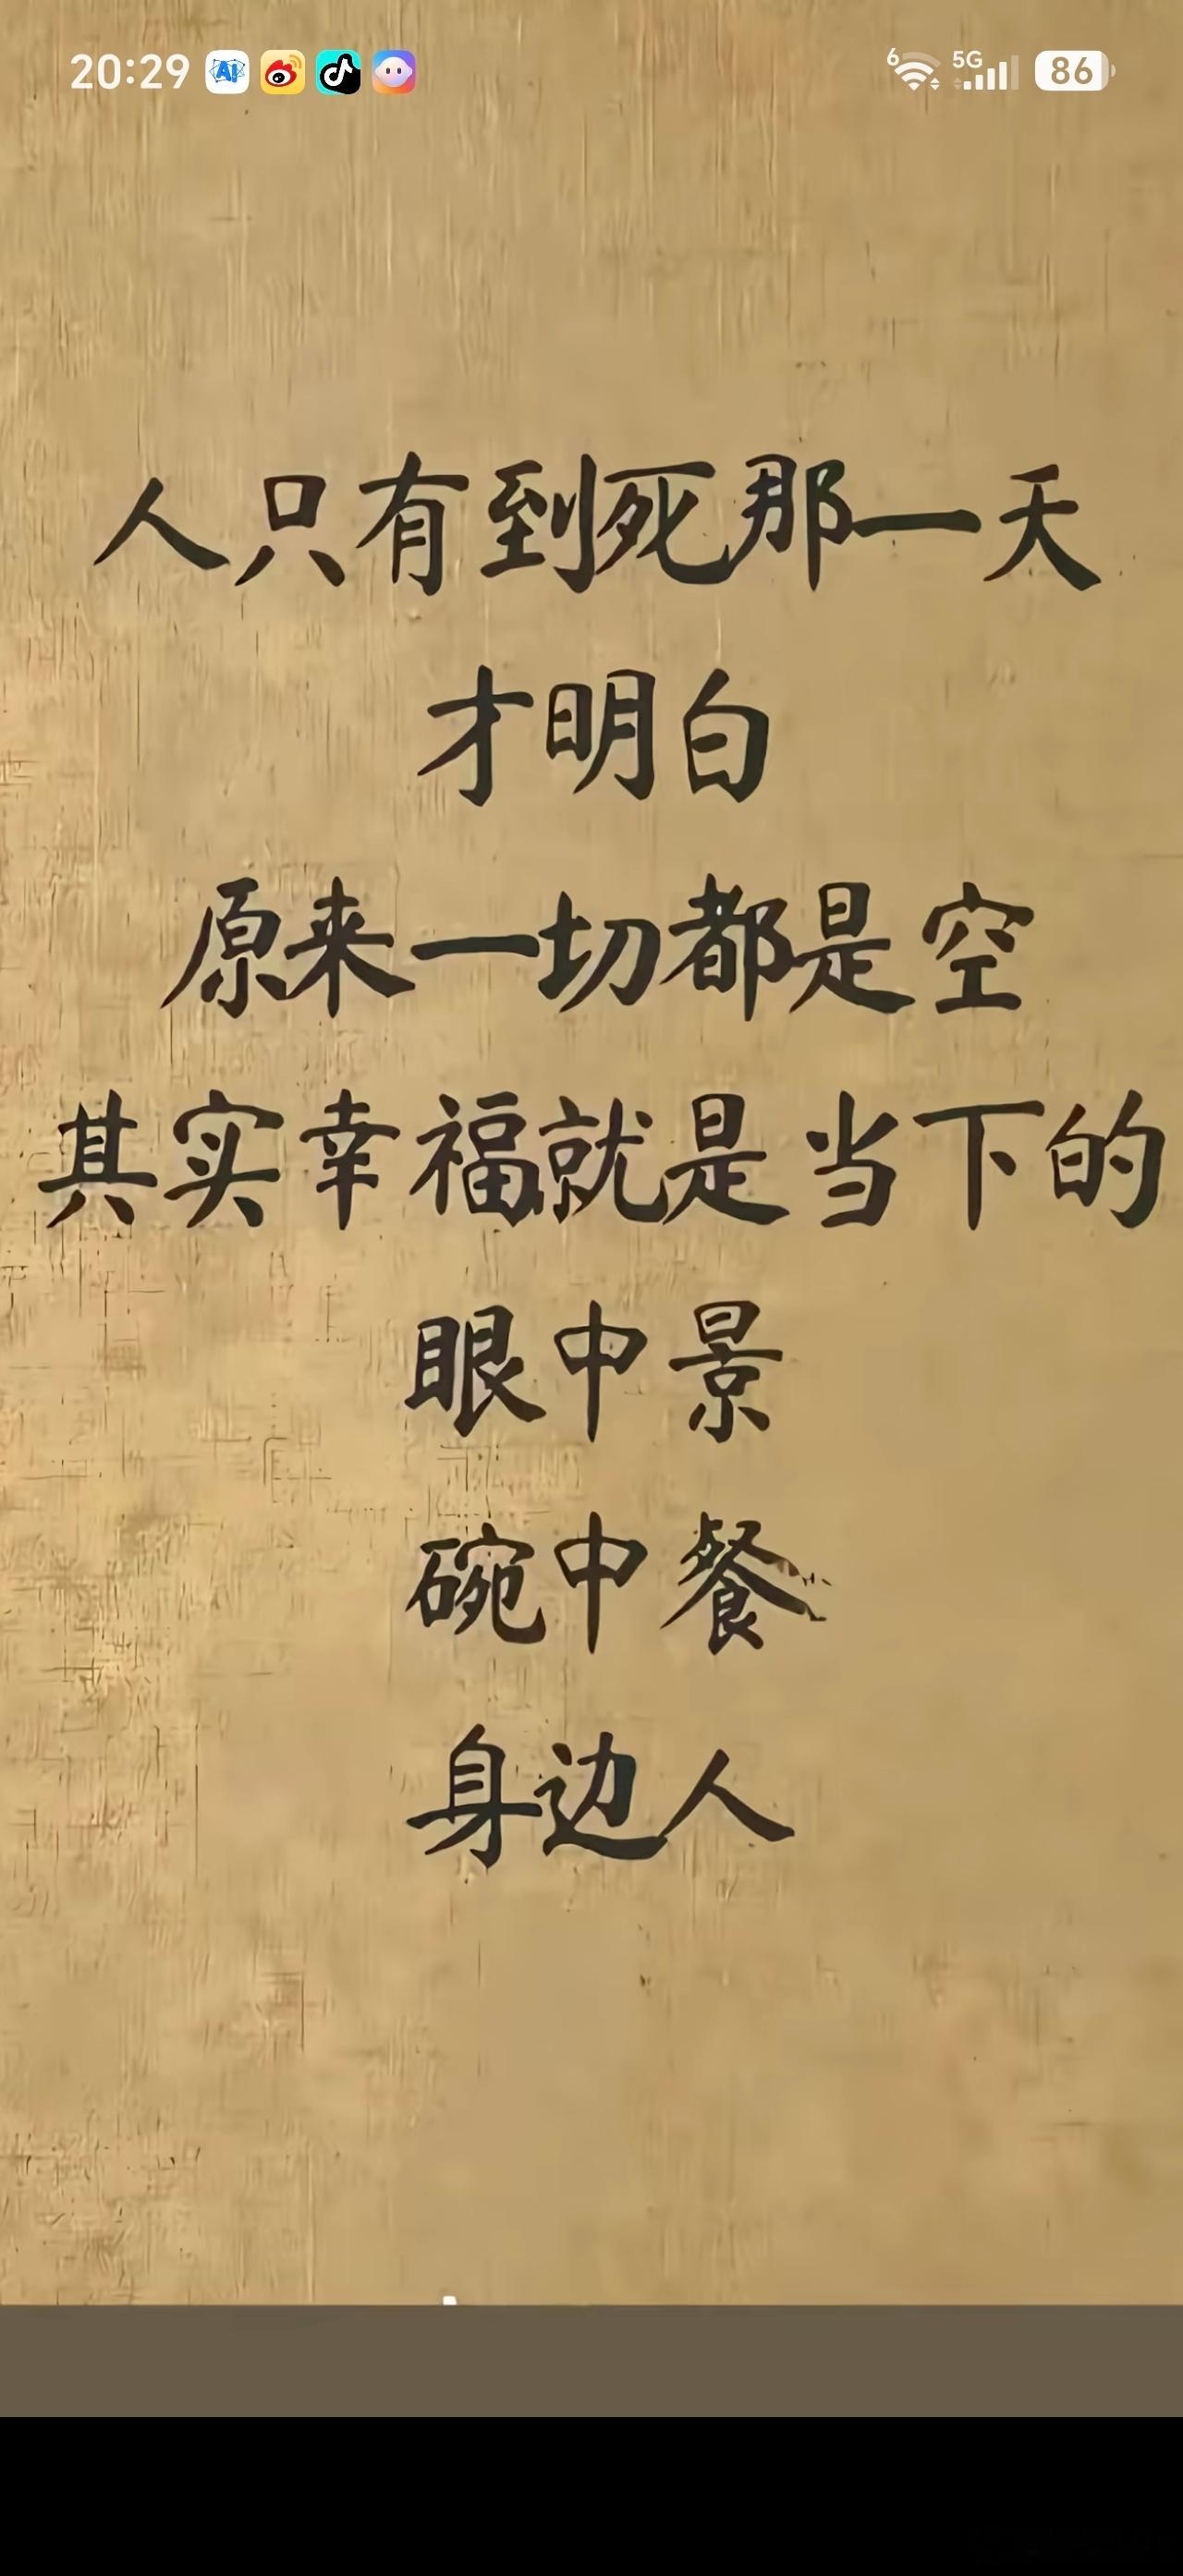 20:29 AI 6 5G 86
人只有到死那一天
才明白
原来一切都是空
其实幸福就是当下的
眼中景
碗中餐
身边人